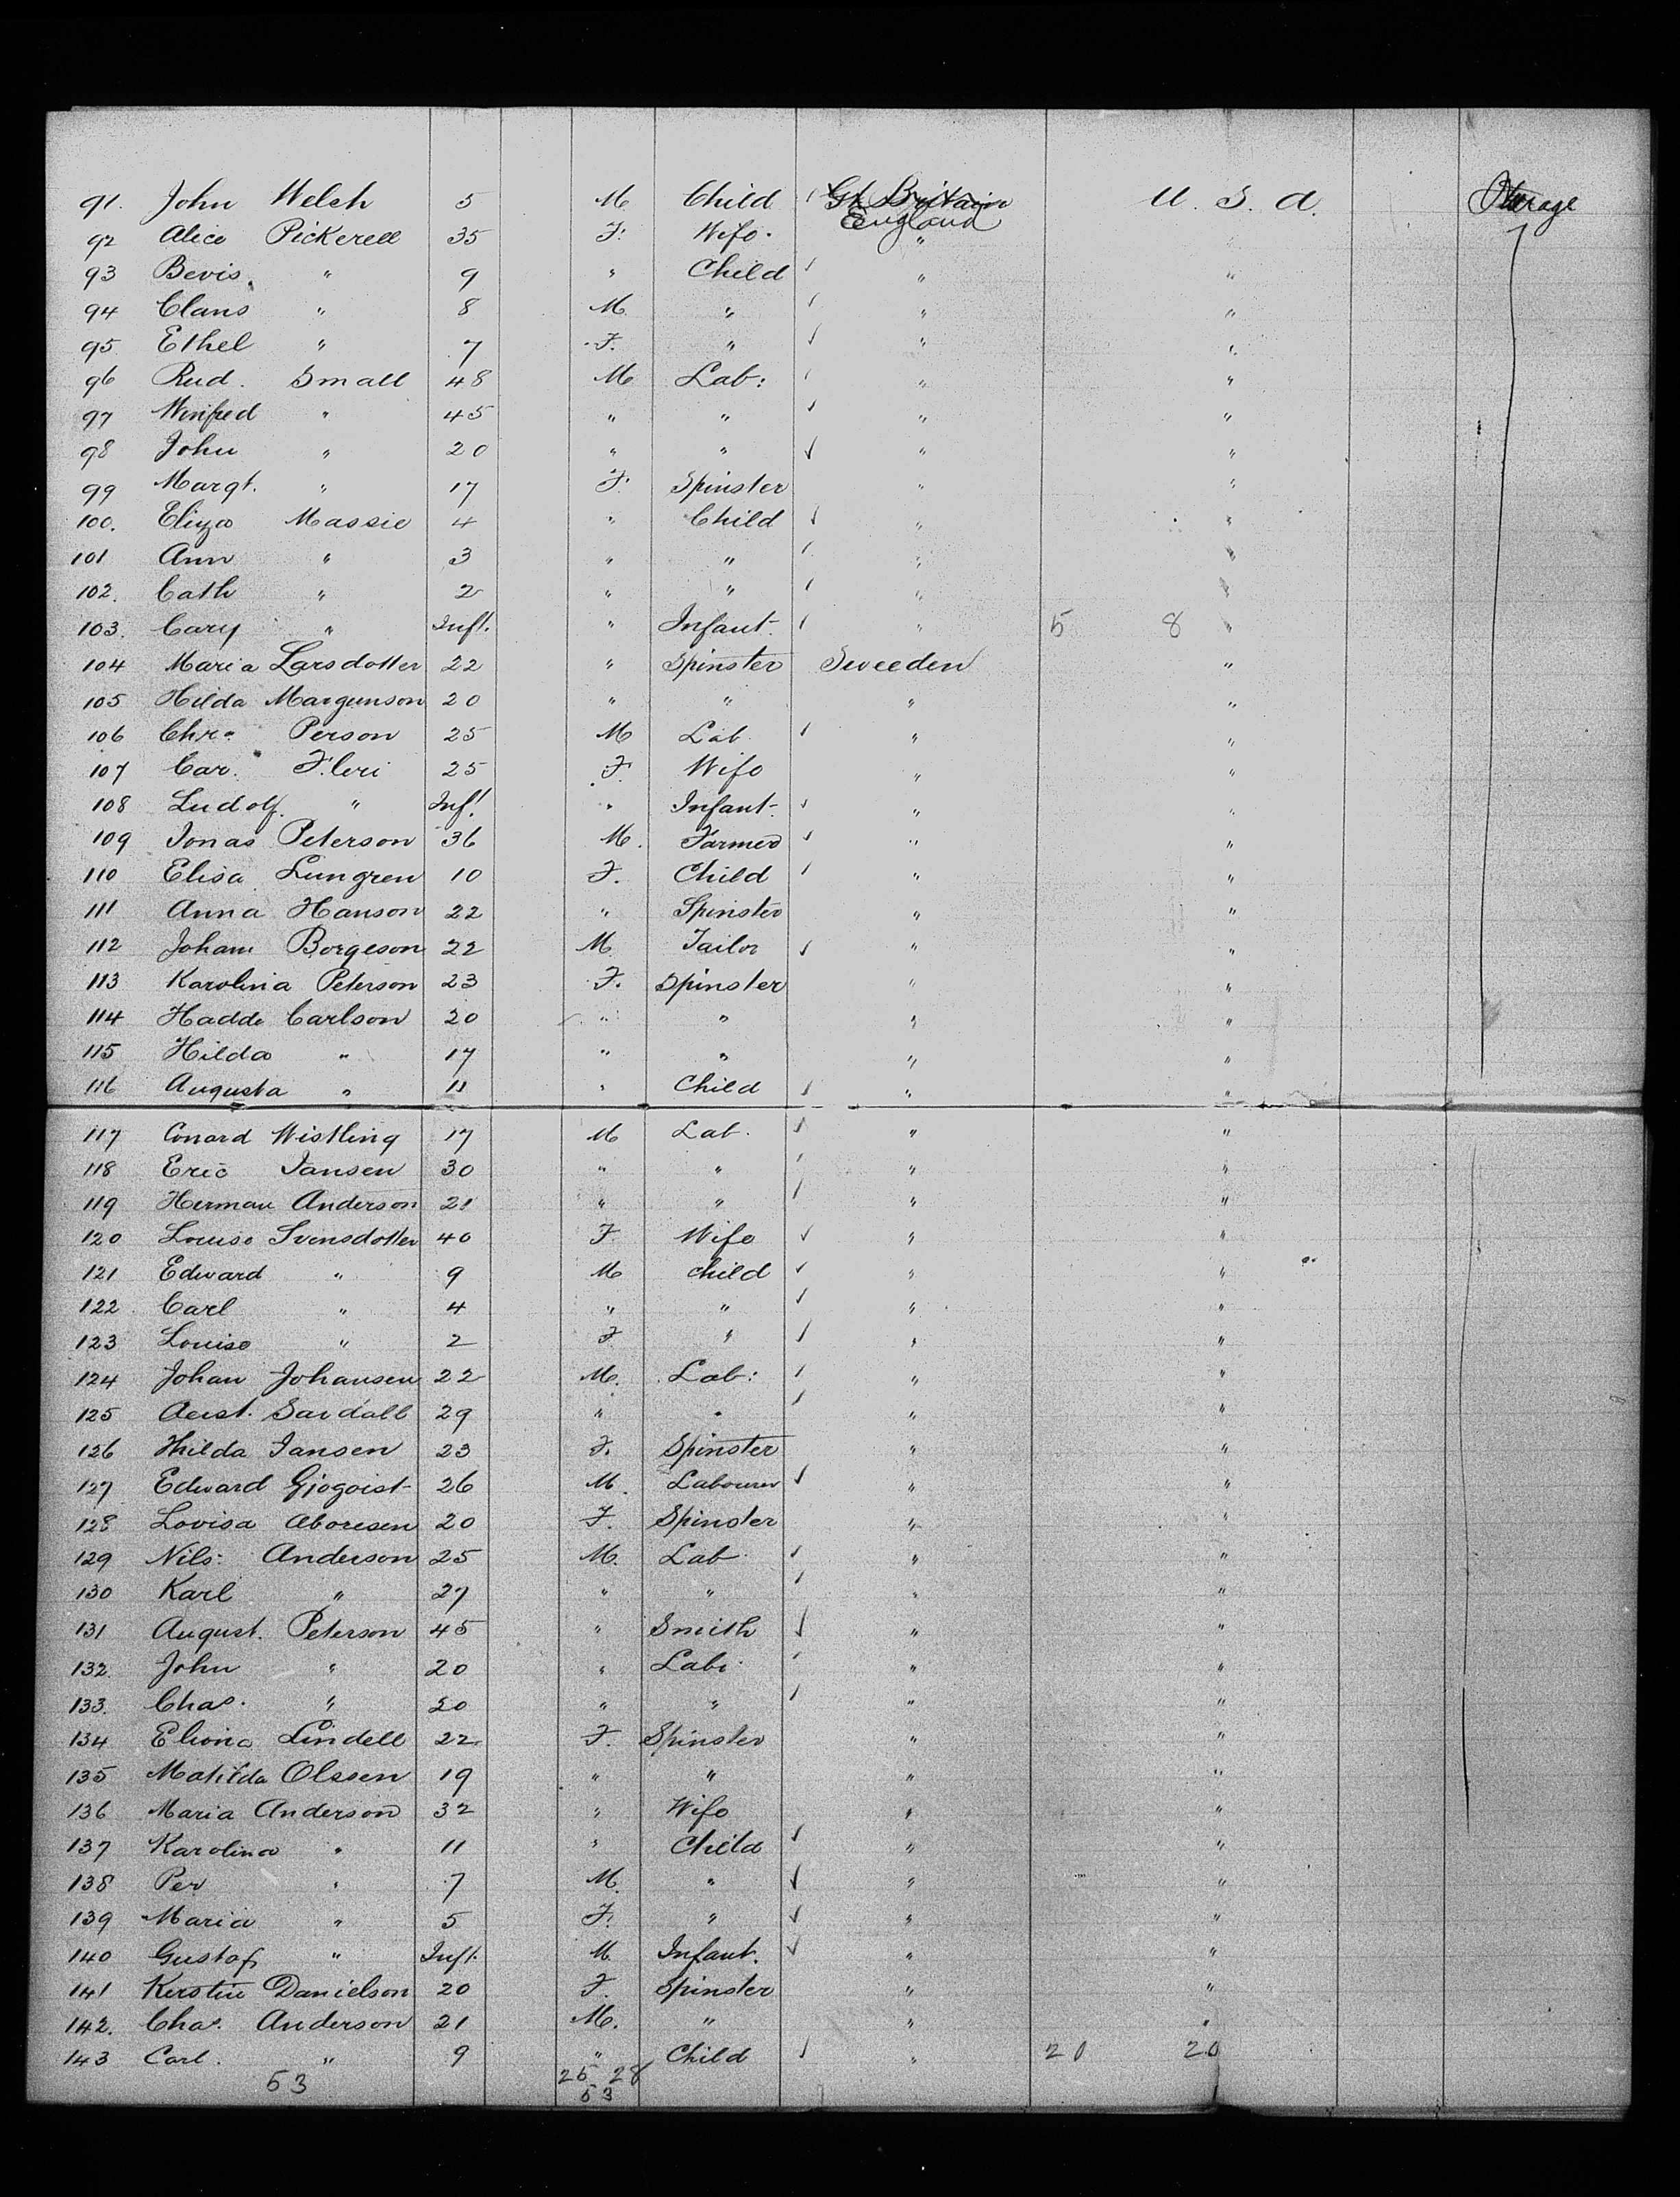 91. John Welsh 5 M Child Gt Britain U. S. A. Steerage
England
92 Alice Pickerell 35 F. Wife. " "
93 Bevis " 9 " Child " "
94 Clans " 8 M " " "
95 Ethel " 7 F. " " "
96 Rud. Small 48 M Lab: " "
97 Winifred " 45 " " " "
98 John " 20 " " " "
99 Margt. " 17 F. Spinster " "
100. Eliza Massie 4 " Child " "
101 Ann " 3 " " " "
102. Cath " 2 " " " "
103. Cary " Inft. " Infant. " 5 8 "
104 Maria Larsdotter 22 " Spinster Sweeden "
105 Hilda Margunson 20 " " " "
106 Chrs. Person 25 M Lab. " "
107 Car. Fleri 25 F. Wife " "
108 Ludolf. " Inft. " Infant. " "
109 Jonas Peterson 36 M. Farmer " "
110 Elisa Lungren 10 F. Child " "
111 Anna Hanson 22 " Spinster " "
112 Johan Borgeson 22 M Tailor " "
113 Karolina Peterson 23 F. Spinster " "
114 Hadde Carlson 20 " " " "
115 Hilda " 17 " " " "
116 Augusta " 11 " Child " "
117 Conard Wistling 17 M Lab. " "
118 Eric Jansen 30 " " " "
119 Herman Anderson 21 " " " "
120 Louise Svensdotter 40 F Wife " "
121 Edward " 9 M child " "
122 Carl " 4 " " " "
123 Louise " 2 F " " "
124 Johan Johansen 22 M. Lab: " "
125 Sardall 29 " " " "
126 Hhilda Jansen 23 F. Spinster " "
127 Edward Gjogoist 26 M. Labourer " "
128 Lovisa Aboresen 20 F. Spinster " "
129 Nils: Anderson 25 M. Lab " "
130 Karl " 27 " " " "
131 August. Peterson 45 " Smith " "
132. John " 20 " Lab: " "
133. Chas. " 20 " " " "
134 Eliona Lindell 22 F. Spinster " "
135 Matilda Olssen 19 " " " "
136 Maria Anderson 32 " Wife " "
137 Karolina " 11 " Child " "
138 Per " 7 M. " " "
139 Maria " 5 F. " " "
140 Gustaf " Inft. M. Infant. " "
141 Kerstin Danielson 20 F. Spinster " "
142. Chas. Anderson 21 M. " " "
143 Carl. " 9 " Child " 20 20
53 25 28
53